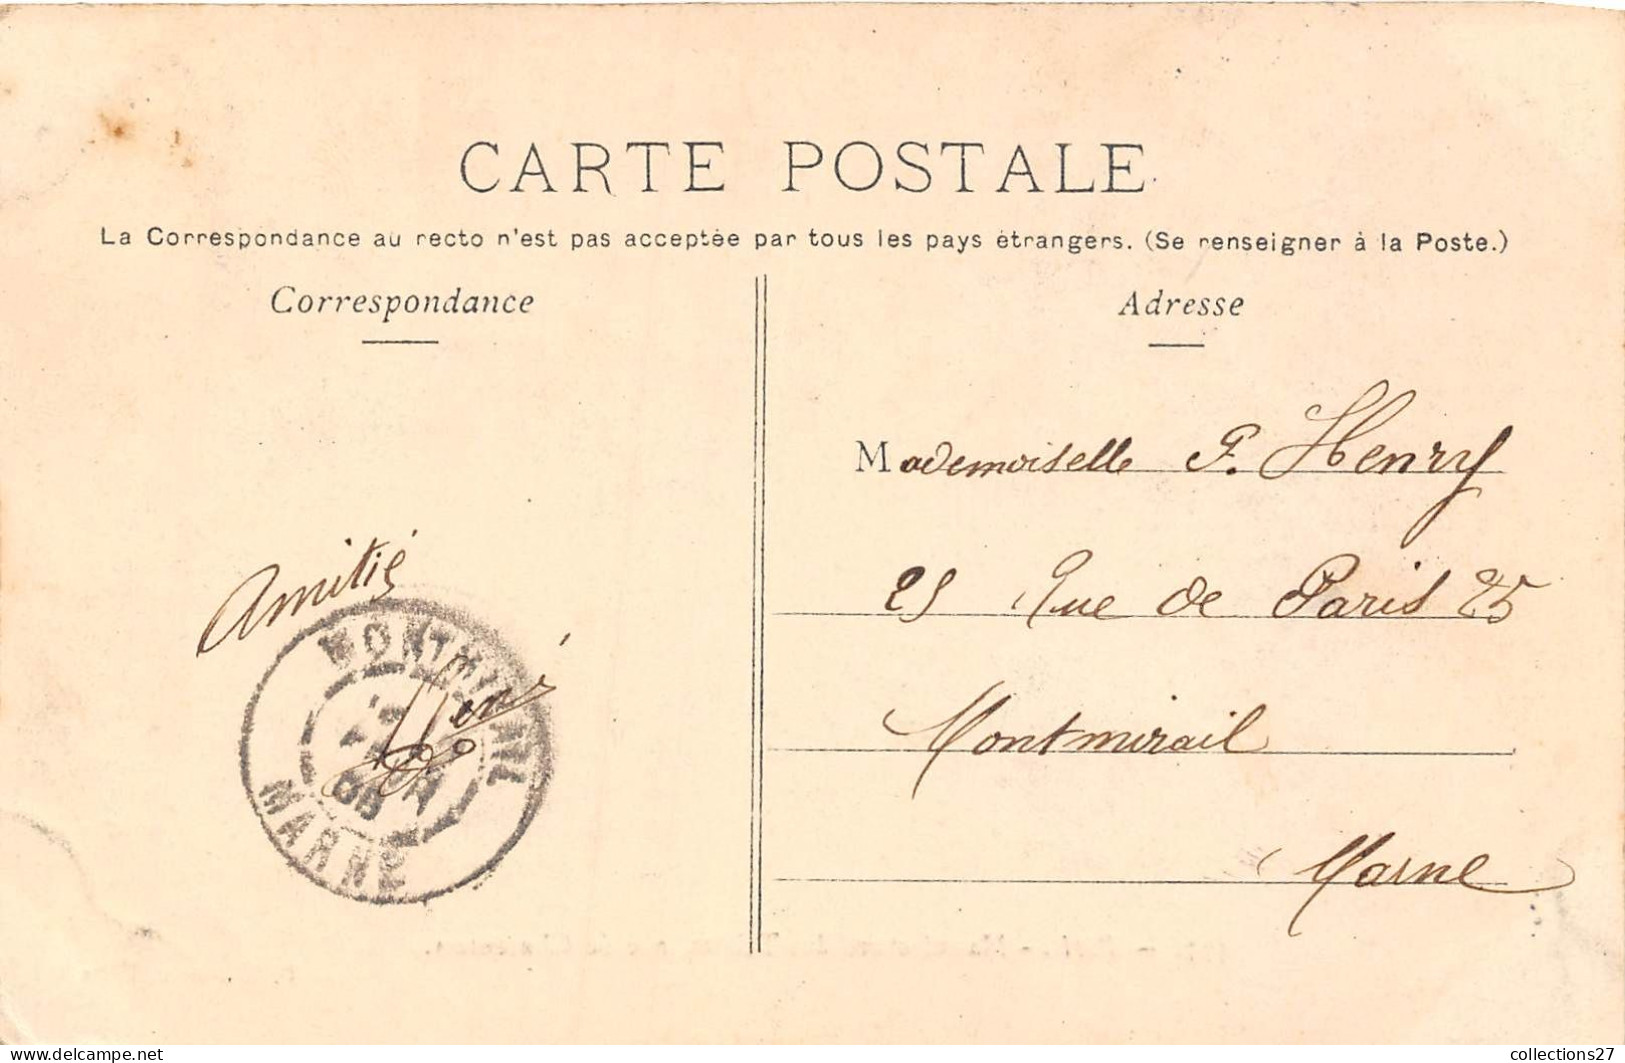 CARTE POSTALE
La Correspondance au recto n'est pas acceptée par tous les pays étrangers. (Se renseigner à la Poste.)
Correspondance
Amitié
MONTMIRAIL
MARNE
Adresse
Mademoiselle F. Henry
25 Rue de Paris 25
Montmirail
Marne
https://www.delcampe.net
collections27